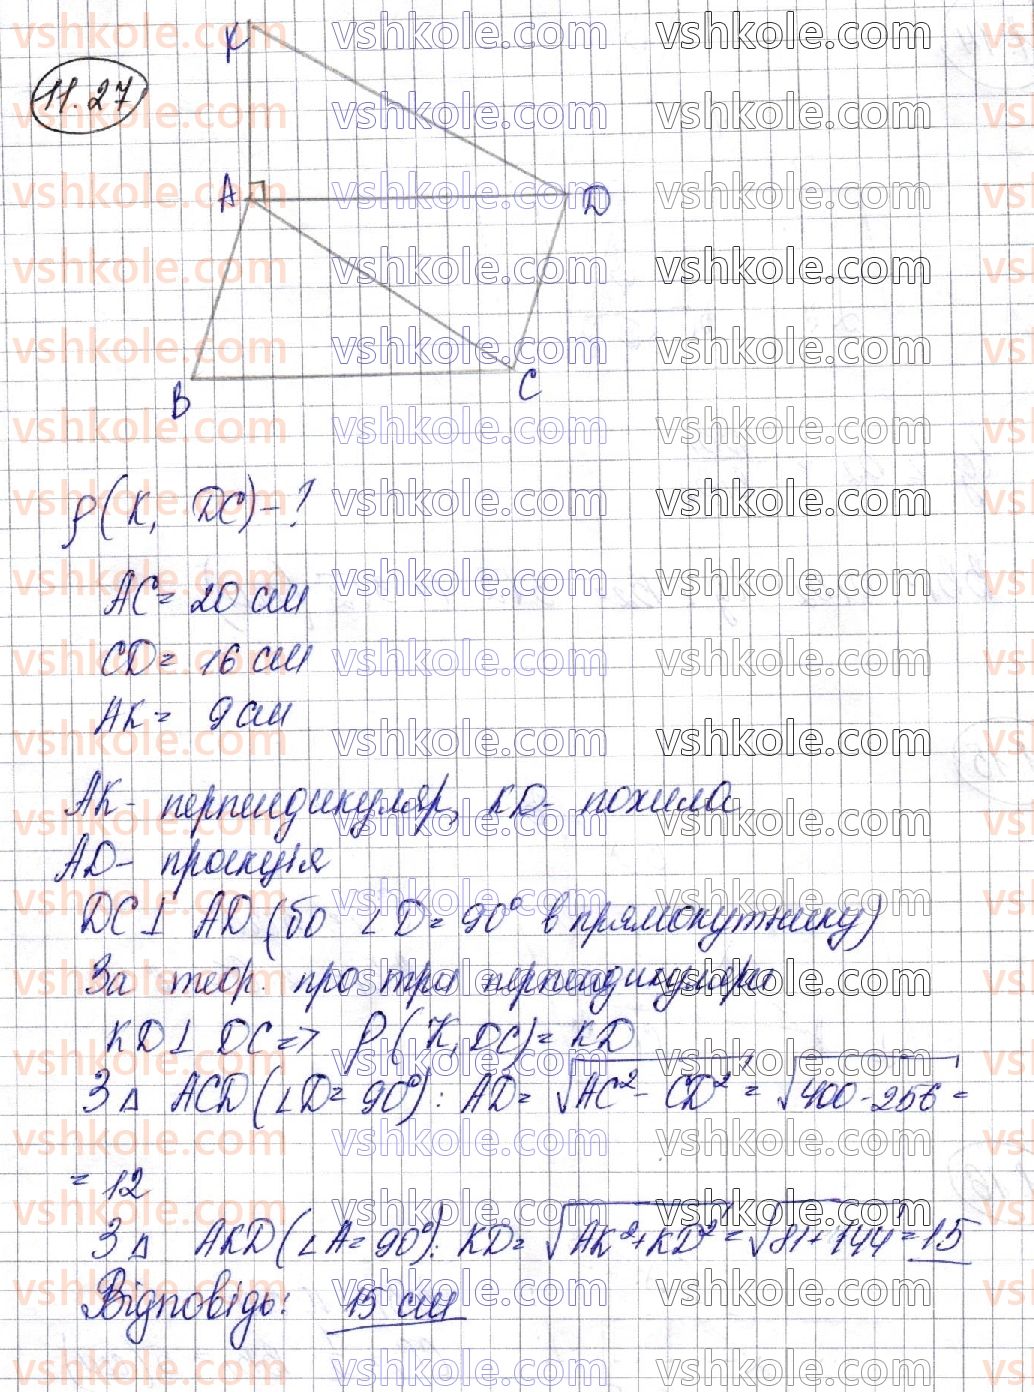 11.27
K
A
D
B
C
ρ(K, DC) - ?
AC = 20 см
CD = 16 см
AK = 9 см
AK - перпендикуляр, KD - похила
AD - проекція
DC ⊥ AD (бо ∠D = 90° в прямокутнику)
За теор. про три перпендикуляри
KD ⊥ DC => ρ(K, DC) = KD
З Δ ACD (∠D = 90°): AD = √AC² - CD² = √400 - 256 =
= 12
З Δ AKD (∠A = 90°): KD = √AK² + KD² = √81 + 144 = 15
Відповідь: 15 см
vshkole.com